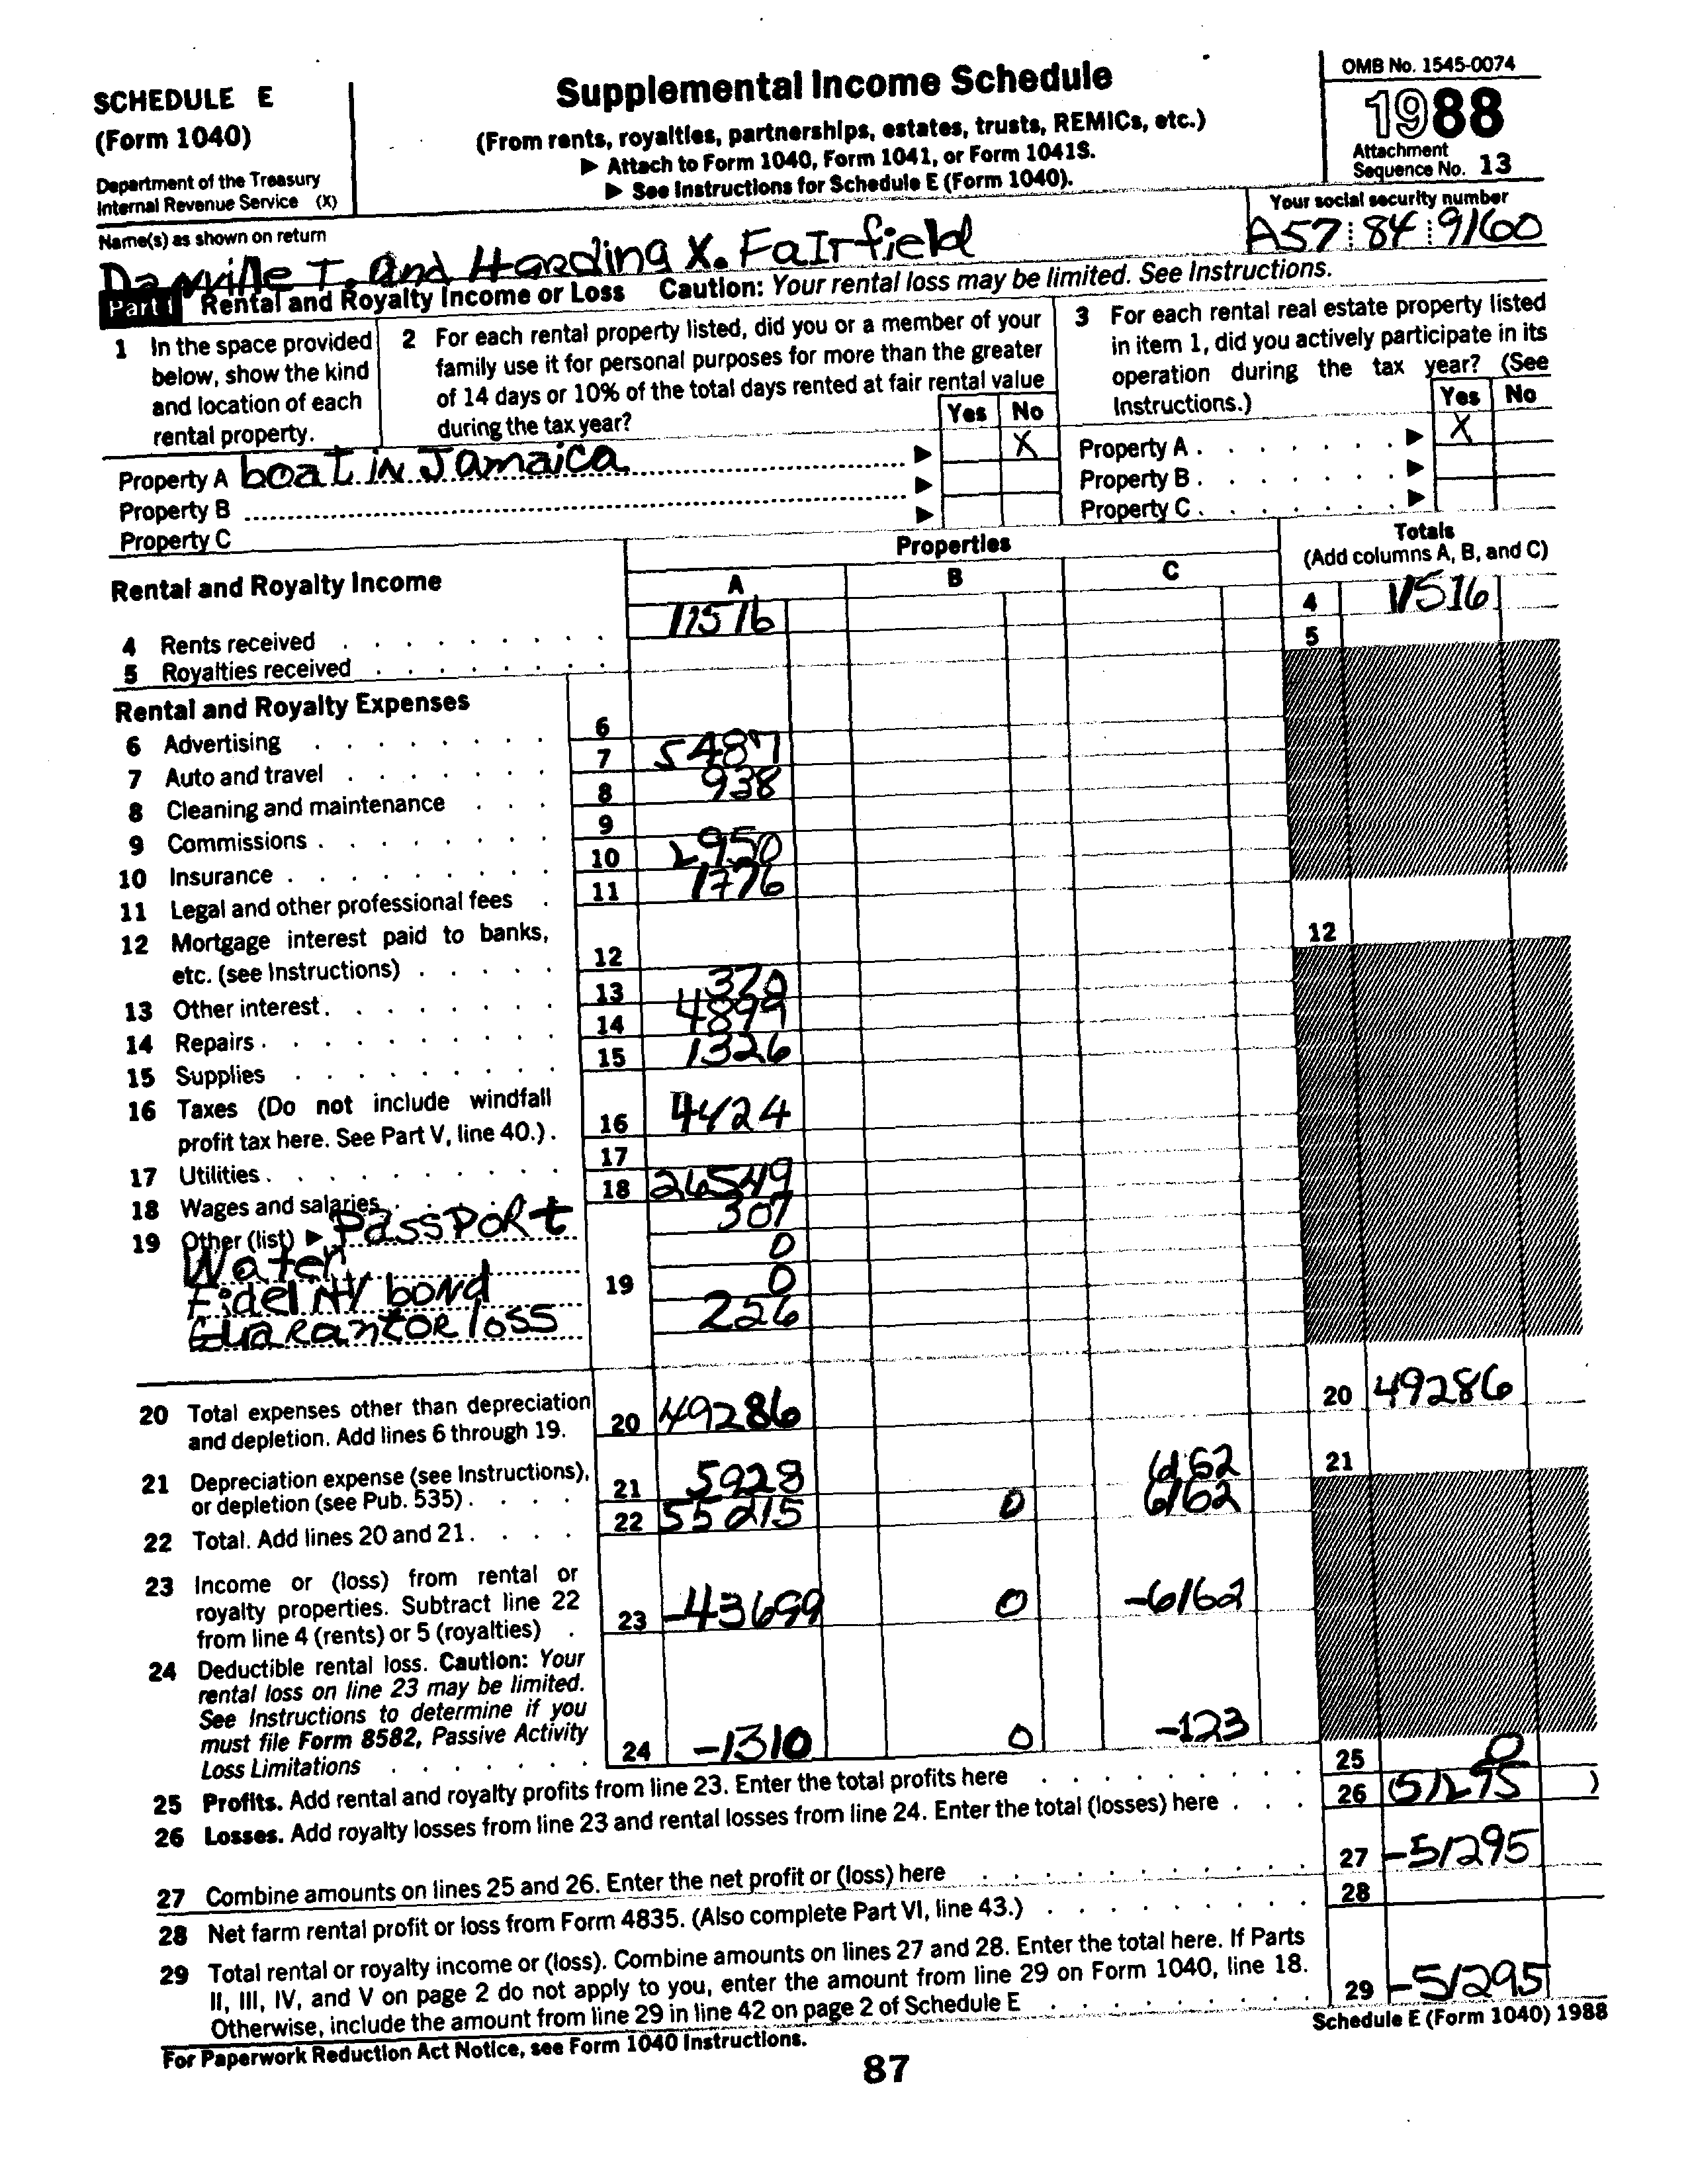 SCHEDULE E
(Form 1040)
Department of the Treasury
Internal Revenue Service (X)
Supplemental Income Schedule
(From rents, royalties, partnerships, estates, trusts, REMICs, etc.)
▶ Attach to Form 1040, Form 1041, or Form 1041S.
▶ See Instructions for Schedule E (Form 1040).
OMB No. 1545-0074
1988
Attachment
Sequence No. 13
Name(s) as shown on return
Danville T. and Harding X. Fairfield
Your social security number
A57 84 9160
Part I Rental and Royalty Income or Loss Caution: Your rental loss may be limited. See Instructions.
1 In the space provided
below, show the kind
and location of each
rental property.
2 For each rental property listed, did you or a member of your
family use it for personal purposes for more than the greater
of 14 days or 10% of the total days rented at fair rental value
during the tax year?
Yes No
3 For each rental real estate property listed
in item 1, did you actively participate in its
operation during the tax year? (See
Instructions.)
Yes No
Property A boat in Jamaica ▶ X
Property B ▶
Property C ▶
Property A . . . . . . ▶ X
Property B . . . . . . ▶
Property C . . . . . . ▶
Rental and Royalty Income
Properties
A B C
Totals
(Add columns A, B, and C)
4 Rents received 11516 4 11516
5 Royalties received 5
Rental and Royalty Expenses
6 Advertising 6
7 Auto and travel 7 5487
8 Cleaning and maintenance 8 938
9 Commissions 9
10 Insurance 10 2950
11 Legal and other professional fees 11 1776
12 Mortgage interest paid to banks,
etc. (see Instructions) 12 12
13 Other interest 13 320
14 Repairs 14 4899
15 Supplies 15 1326
16 Taxes (Do not include windfall
profit tax here. See Part V, line 40.) 16 4424
17 Utilities 17
18 Wages and salaries 18 26549
19 Other (list) ▶ Passport 307
Water 0
Fidelity bond 19 0
Guarantor loss 226
20 Total expenses other than depreciation
and depletion. Add lines 6 through 19. 20 49286 20 49286
21 Depreciation expense (see Instructions),
or depletion (see Pub. 535) 21 5928 6162 21
22 Total. Add lines 20 and 21. 22 55215 0 6162
23 Income or (loss) from rental or
royalty properties. Subtract line 22
from line 4 (rents) or 5 (royalties) 23 -43699 0 -6162
24 Deductible rental loss. Caution: Your
rental loss on line 23 may be limited.
See Instructions to determine if you
must file Form 8582, Passive Activity
Loss Limitations 24 -1310 0 -123
25 Profits. Add rental and royalty profits from line 23. Enter the total profits here 25 0
26 Losses. Add royalty losses from line 23 and rental losses from line 24. Enter the total (losses) here 26 (51295 )
27 Combine amounts on lines 25 and 26. Enter the net profit or (loss) here 27 -51295
28 Net farm rental profit or loss from Form 4835. (Also complete Part VI, line 43.) 28
29 Total rental or royalty income or (loss). Combine amounts on lines 27 and 28. Enter the total here. If Parts
II, III, IV, and V on page 2 do not apply to you, enter the amount from line 29 on Form 1040, line 18.
Otherwise, include the amount from line 29 in line 42 on page 2 of Schedule E 29 -51295
For Paperwork Reduction Act Notice, see Form 1040 Instructions.
Schedule E (Form 1040) 1988
87